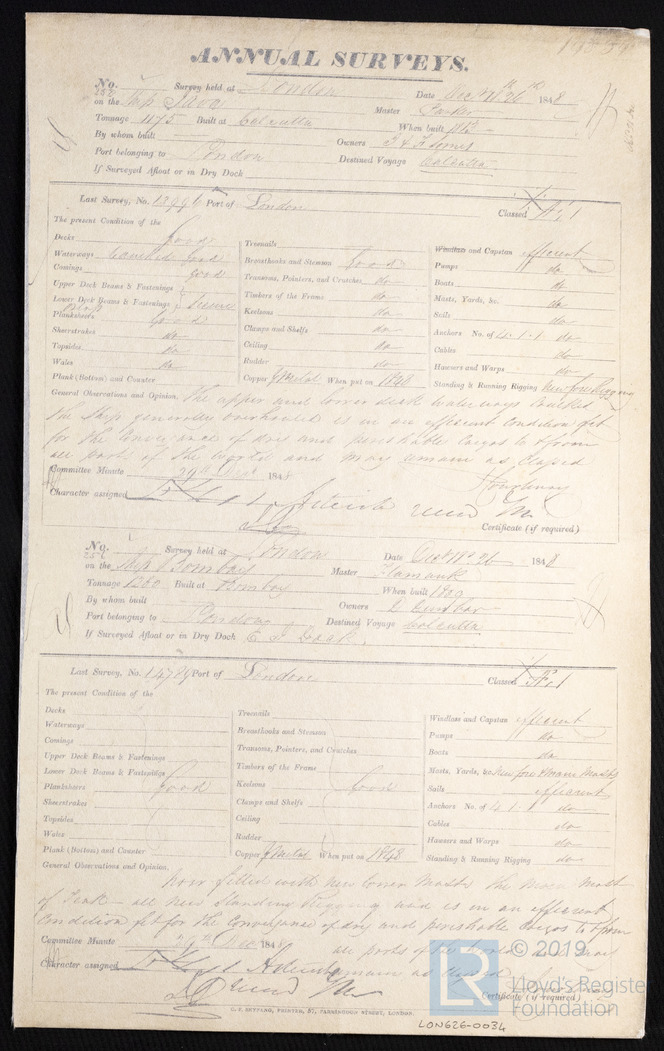 ANNUAL SURVEYS.
No. Survey held at London Date Decr 1848
on the Ship Java Master Parker
Tonnage 1175 Built at Calcutta When built 1813
By whom built Owners
Port belonging to London Destined Voyage Calcutta
If Surveyed Afloat or in Dry Dock
Last Survey, No. 13996 Port of London Classed Æ 1
The present Condition of the
Decks good
Waterways caulked good
Comings good
Upper Deck Beams & Fastenings
Lower Deck Beams & Fastenings
Planksheers good
Sheerstrakes do
Topsides do
Wales do
Plank (Bottom) and Counter
Treenails
Breasthooks and Stemson good
Transoms, Pointers, and Crutches do
Timbers of the Frame do
Keelsons do
Clamps and Shelfs do
Ceiling do
Rudder do
Copper Y Metal When put on 1848
Windlass and Capstan efficient
Pumps do
Boats do
Masts, Yards, &c. do
Sails do
Anchors No. of 4.1.1 do
Cables do
Hawsers and Warps do
Standing & Running Rigging New fore Rigging
General Observations and Opinion. The upper and lower deck waterways caulked
the Ship generally overhauled is in an efficient condition fit
for the Conveyance of dry and perishable Cargos to & from
all parts of the world and may remain as classed
Committee Minute 29th Decr 1848
Character assigned
Certificate (if required)
No. Survey held at London Date Decr 1848
on the Ship Bombay Master Flamank
Tonnage 1260 Built at Bombay When built 1809
By whom built Owners D Dunbar
Port belonging to London Destined Voyage Calcutta
If Surveyed Afloat or in Dry Dock E I Dock
Last Survey, No. 14789 Port of London Classed Æ 1
The present Condition of the
Decks
Waterways
Comings
Upper Deck Beams & Fastenings
Lower Deck Beams & Fastenings
Planksheers good
Sheerstrakes
Topsides
Wales
Plank (Bottom) and Counter
Treenails
Breasthooks and Stemson
Transoms, Pointers, and Crutches
Timbers of the Frame
Keelsons good
Clamps and Shelfs
Ceiling
Rudder
Copper Y Metal When put on 1848
Windlass and Capstan efficient
Pumps do
Boats do
Masts, Yards, &c New fore & main Masts
Sails efficient
Anchors No. of 4.1.1 do
Cables do
Hawsers and Warps do
Standing & Running Rigging do
General Observations and Opinion.
now fitted with new lower Masts the Main Mast
of Teak - all new Standing Rigging and is in an efficient
condition fit for the Conveyance of dry and perishable Cargos to & from
Committee Minute 29th Decr 1848 all parts of the world and may
Character assigned remain as classed
Certificate (if required)
C. F. SEYFANG, PRINTER, 57, FARRINGDON STREET, LONDON.
LON626-0034
LR
© 2019
Lloyd's Register
Foundation